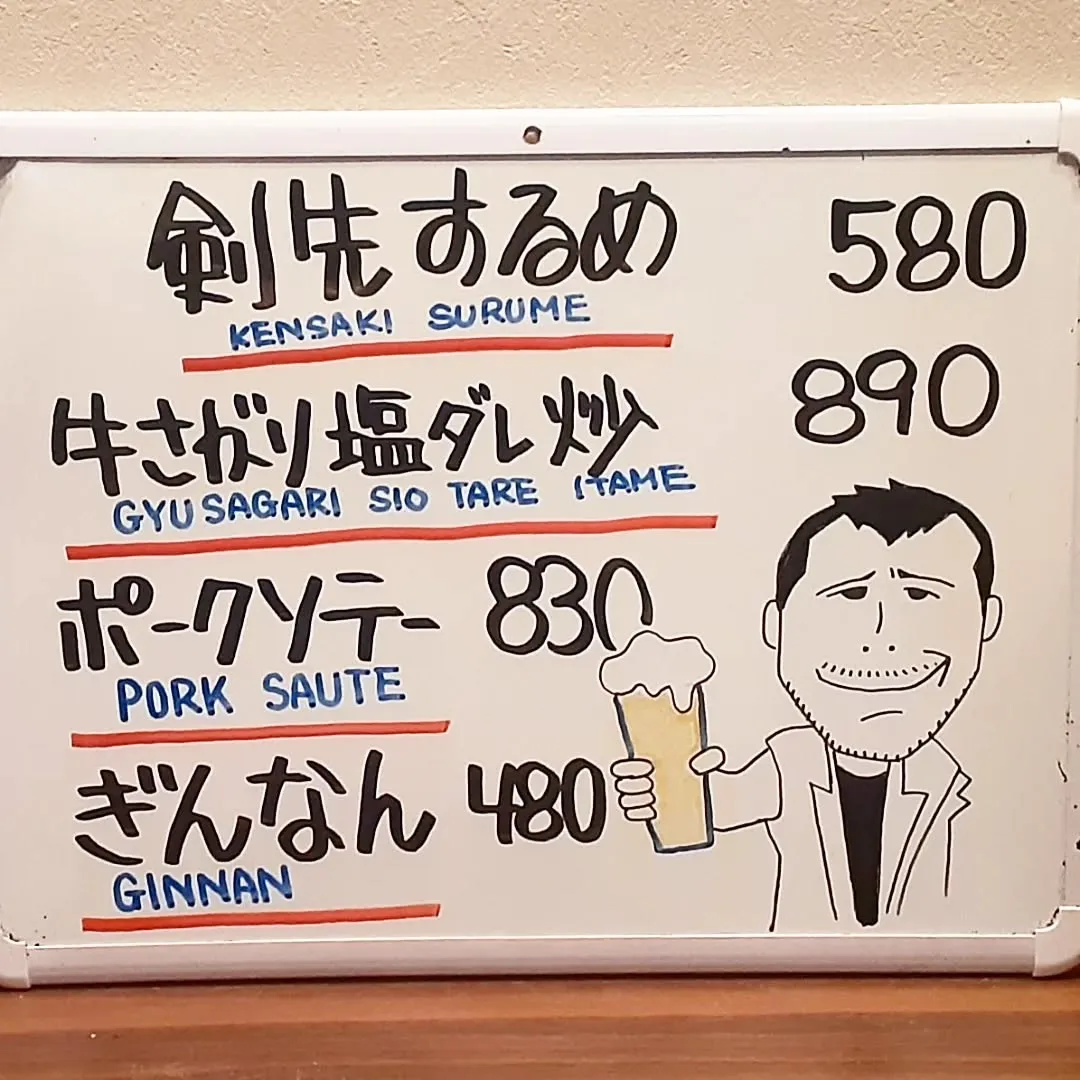 剣先するめ 580
KENSAKI SURUME
牛さがり塩ダレ炒 890
GYUSAGARI SIO TARE ITAME
ポークソテー 830
PORK SAUTE
ぎんなん 480
GINNAN